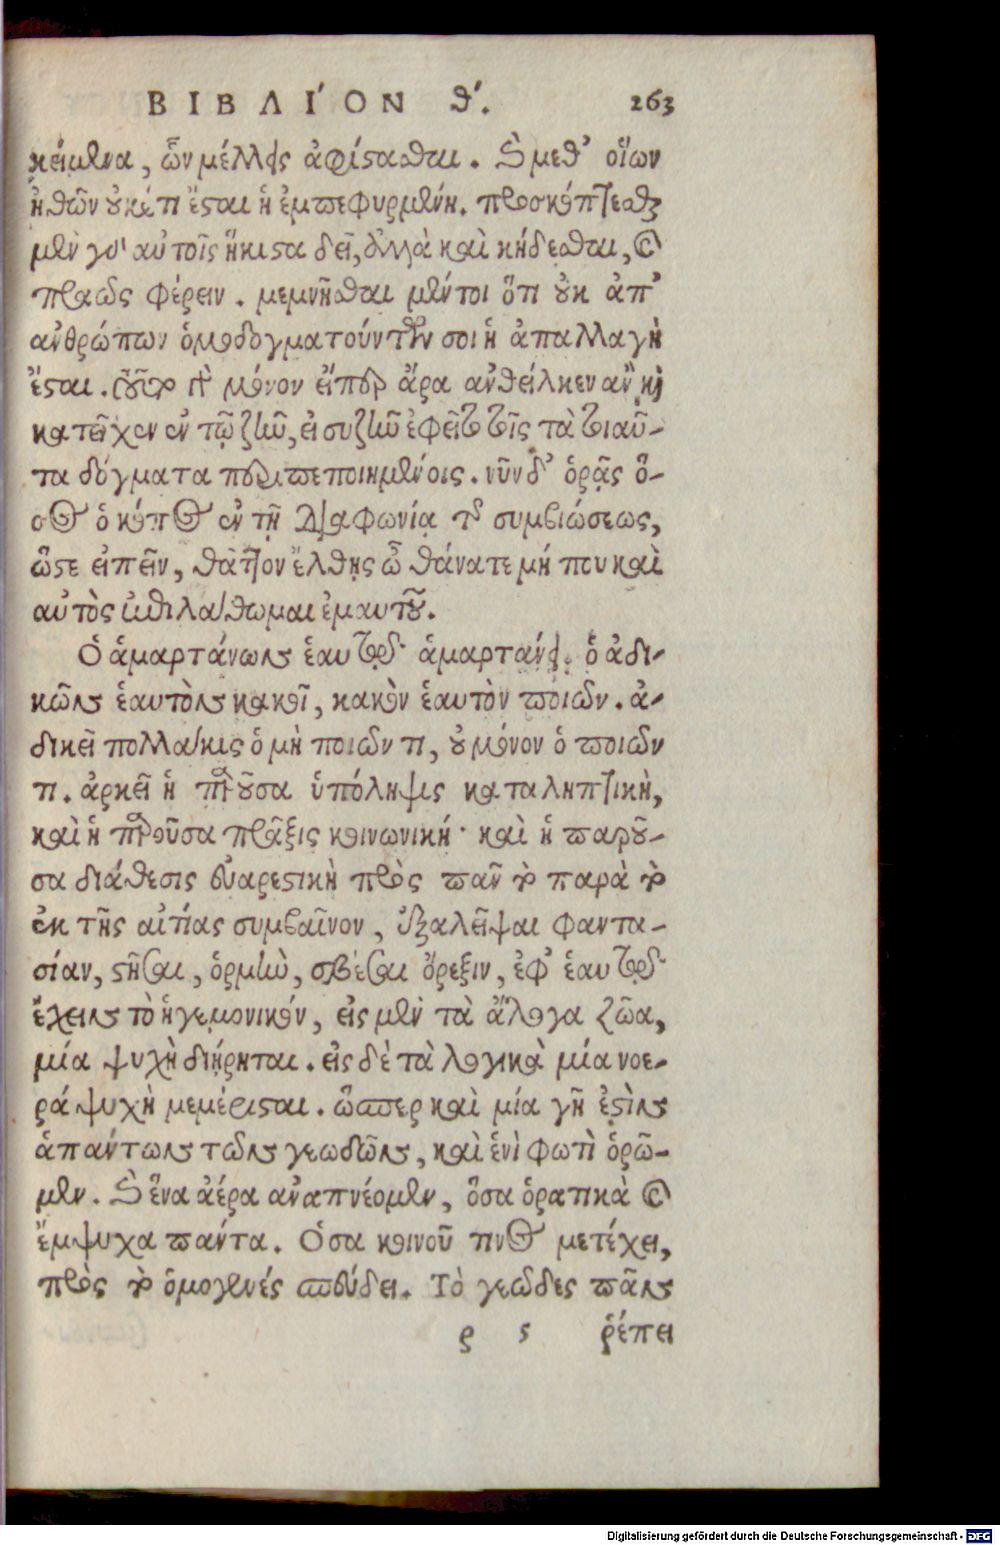 ΒΙΒΛΙ´ΟΝ θ´. 263
κείμενα, ὧν μέλλεις ἀφίστασθαι. καὶ μεθ’ οἵων
ἠθῶν οὐκέτι ἔσται ἡ ἐμπεφυρμένη. προσκόπτεσθαι
μὲν γὰρ αὐτοῖς ἥκιστα δεῖ, ἀλλὰ καὶ κήδεσθαι, καὶ
πράως φέρειν. μεμνῆσθαι μέντοι ὅτι οὐκ ἀπ’
ἀνθρώπων ὁμοδογματούντων σοι ἡ ἀπαλλαγὴ
ἔσται. τοῦτο γὰρ μόνον εἴπερ ἄρα ἀνθεῖλκεν ἂν καὶ
κατεῖχεν ἐν τῷ ζῆν, εἰ συζῆν ἐφεῖτο τοῖς τὰ τοιαῦ-
τα δόγματα περιπεποιημένοις. νῦν δ’ ὁρᾷς ὅ-
σος ὁ κόπος ἐν τῇ διαφωνίᾳ τῆς συμβιώσεως,
ὥστε εἰπεῖν, θᾶττον ἔλθῃς ὦ θάνατε μή που καὶ
αὐτὸς ἐπιλάθωμαι ἐμαυτοῦ.
Ὁ ἁμαρτάνων ἑαυτῷ ἁμαρτάνει. ὁ ἀδι-
κῶν ἑαυτὸν κακοῖ, κακὸν ἑαυτὸν ποιῶν. ἀ-
δικεῖ πολλάκις ὁ μὴ ποιῶν τι, οὐ μόνον ὁ ποιῶν
τι. ἀρκεῖ ἡ παροῦσα ὑπόληψις καταληπτικὴ,
καὶ ἡ παροῦσα πρᾶξις κοινωνική· καὶ ἡ παροῦ-
σα διάθεσις εὐαρεστικὴ πρὸς πᾶν τὸ παρὰ τὸ
ἐκ τῆς αἰτίας συμβαῖνον, ἐξαλεῖψαι φαντα-
σίαν, στῆσαι, ὁρμὴν, σβέσαι ὄρεξιν, ἐφ’ ἑαυτῷ
ἔχειν τὸ ἡγεμονικόν, εἰς μὲν τὰ ἄλογα ζῶα,
μία ψυχὴ διῄρηται. εἰς δὲ τὰ λογικὰ μία νοε-
ρά ψυχὴ μεμέρισται. ὥσπερ καὶ μία γῆ ἐστὶν
ἁπάντων τῶν γεωδῶν, καὶ ἑνὶ φωτὶ ὁρῶ-
μεν. καὶ ἕνα ἀέρα ἀναπνέομεν, ὅσα ὁρατικὰ καὶ
ἔμψυχα πάντα. Ὅσα κοινοῦ τινος μετέχει,
πρὸς τὸ ὁμογενές σπεύδει. Τὸ γεῶδες πᾶν
ρ 5 ῥέπει
Digitalisierung gefördert durch die Deutsche Forschungsgemeinschaft - DFG